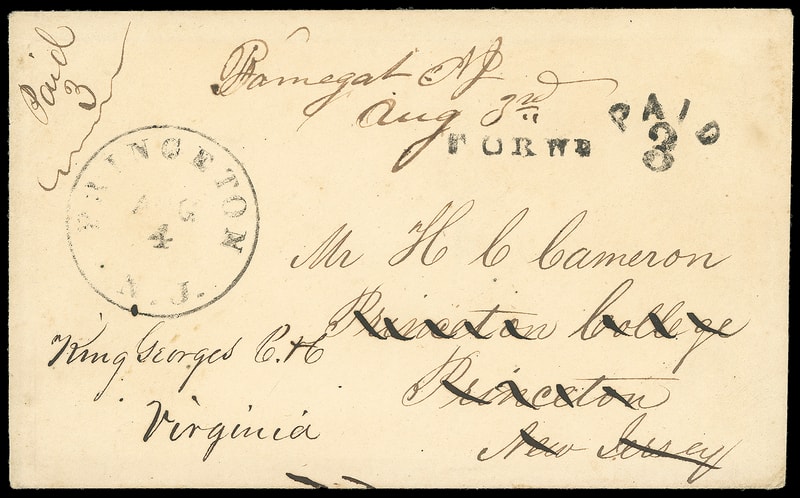 Paid
3
Barnegat NJ
Aug 3rd
PAID
3
FORWD
PRINCETON
AUG
4
N.J.
Mr H C Cameron
Princeton College
Princeton
New Jersey
King Georges C.H
Virginia